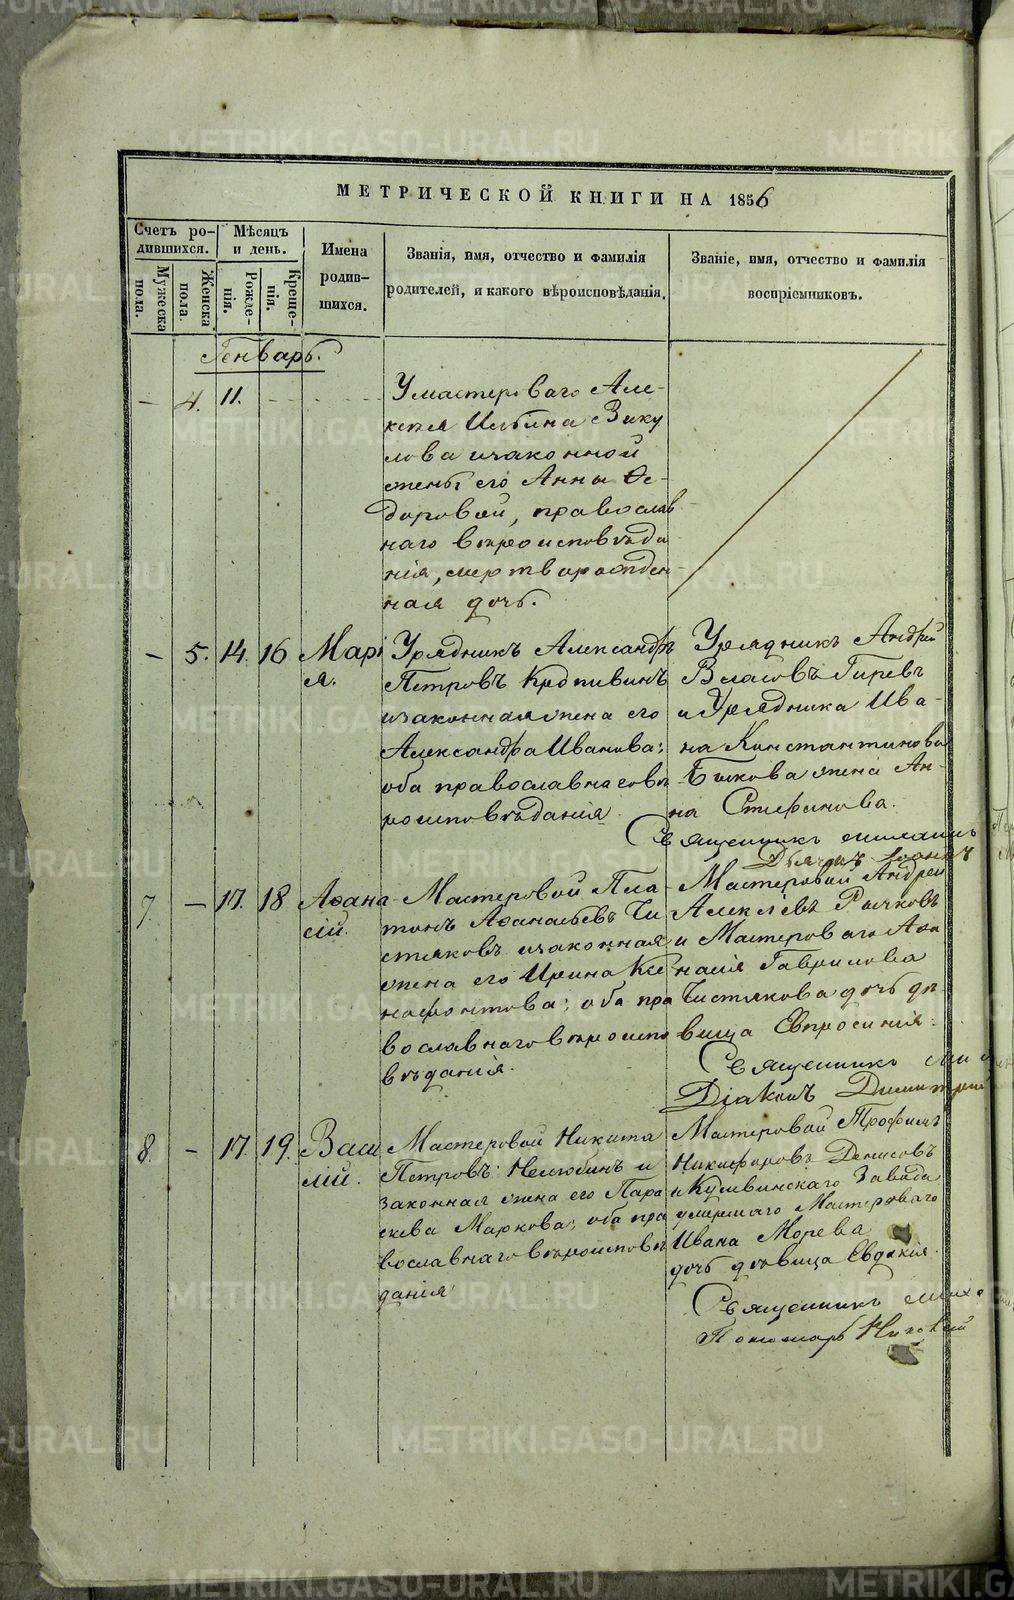 МЕТРИЧЕСКОЙ КНИГИ НА 1856
Счетъ ро-
дившихся.
Мужеска
пола.
Женска
пола.
Мѣсяцъ
и день.
Рожде-
нія.
Креще-
нія.
Имена
родив-
шихся.
Званія, имя, отчество и фамилія
родителей, и какого вѣроисповѣданія.
Званіе, имя, отчество и фамилія
воспріемниковъ.
Генварь.
— 4. 11. - - - -
У мастероваго Але-
ксѣя Ильина Вику
лова и законной
жены его Анны Ѳе-
доровой, православ
наго вѣроисповѣда
нія, мертворожден-
ная дочь.
— 5. 14. 16
Марі
я.
Урядникъ Александръ
Петровъ Крапивинъ
и законная жена его
Александра Иванова;
оба православнаго вѣ
роисповѣданія.
Урядникъ Андрей
Власовъ Гиревъ
и Урядника Ива-
на Константинова
Быкова жена Ан-
на Стефанова.
Священникъ
7. — 17. 18
Аѳана
сій.
Мастеровой Пла-
тонъ Аѳанасьевъ Чи
стяковъ и законная
жена его Ирина Ксе
нофонтова; оба пра
вославнаго вѣроиспо
вѣданія.
Мастеровой Андрей
Алексѣевъ Рычковъ
и Мастероваго Аѳа
насія Гаврилова
Чистякова дочь дѣ
вица Евпросинія.
Священникъ Ми
Діаконъ Димитрій
8. — 17. 19.
Васи
лій.
Мастеровой Никита
Петровъ Нелюбинъ и
законная жена его Пара
скева Маркова; оба пра
вославнаго вѣроисповѣ
данія
Мастеровой Трофимъ
Никифоровъ Денисовъ
и Кушвинскаго Завода
умершаго Мастероваго
Ивана Морева
дочь дѣвица Евдокія.
Священникъ Миха
Пономарь
METRIKI.GASO-URAL.RU